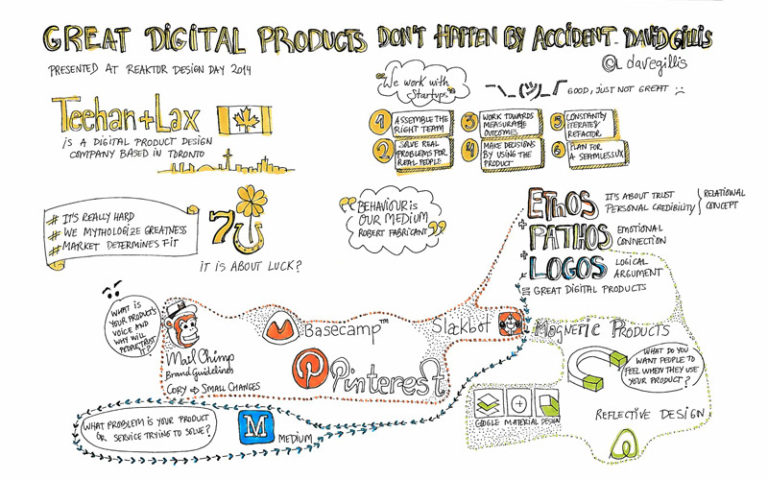 GREAT DIGITAL PRODUCTS DON'T HAPPEN BY ACCIDENT - DAVID GILLIS
PRESENTED AT REAKTOR DESIGN DAY 2014
@L davegillis
Teehan+Lax
IS A DIGITAL PRODUCT DESIGN
COMPANY BASED IN TORONTO
"We work with
Startups"
¯\_(ツ)_/¯ GOOD, JUST NOT GREAT :)
1 ASSEMBLE THE
RIGHT TEAM
2 SOLVE REAL
PROBLEMS FOR
REAL PEOPLE
3 WORK TOWARDS
MEASURABLE
OUTCOMES
4 MAKE DECISIONS
BY USING THE
PRODUCT
5 CONSTANTLY
ITERATE/
REFACTOR
6 PLAN FOR
A SEAMLESS UX
# IT'S REALLY HARD
# WE MYTHOLOGIZE GREATNESS
# MARKET DETERMINES FIT
7
IT IS ABOUT LUCK?
"BEHAVIOUR IS
OUR MEDIUM"
ROBERT FABRICANT
ETHOS
IT'S ABOUT TRUST
PERSONAL CREDIBILITY } RELATIONAL
CONCEPT
+ PATHOS
EMOTIONAL
CONNECTION
+ LOGOS
LOGICAL
ARGUMENT
= GREAT DIGITAL PRODUCTS
WHAT IS
YOUR PRODUCT'S
VOICE AND
WHY WILL
PEOPLE TRUST
IT?
MailChimp
Brand Guidelines
COPY → SMALL CHANGES
Basecamp™
Pinterest
Slackbot
MAGNETIC PRODUCTS
WHAT DO YOU
WANT PEOPLE TO
FEEL WHEN THEY USE
YOUR PRODUCT?
GOOGLE MATERIAL DESIGN
REFLECTIVE DESIGN
WHAT PROBLEM IS YOUR PRODUCT
OR SERVICE TRYING TO SOLVE?
M
MEDIUM